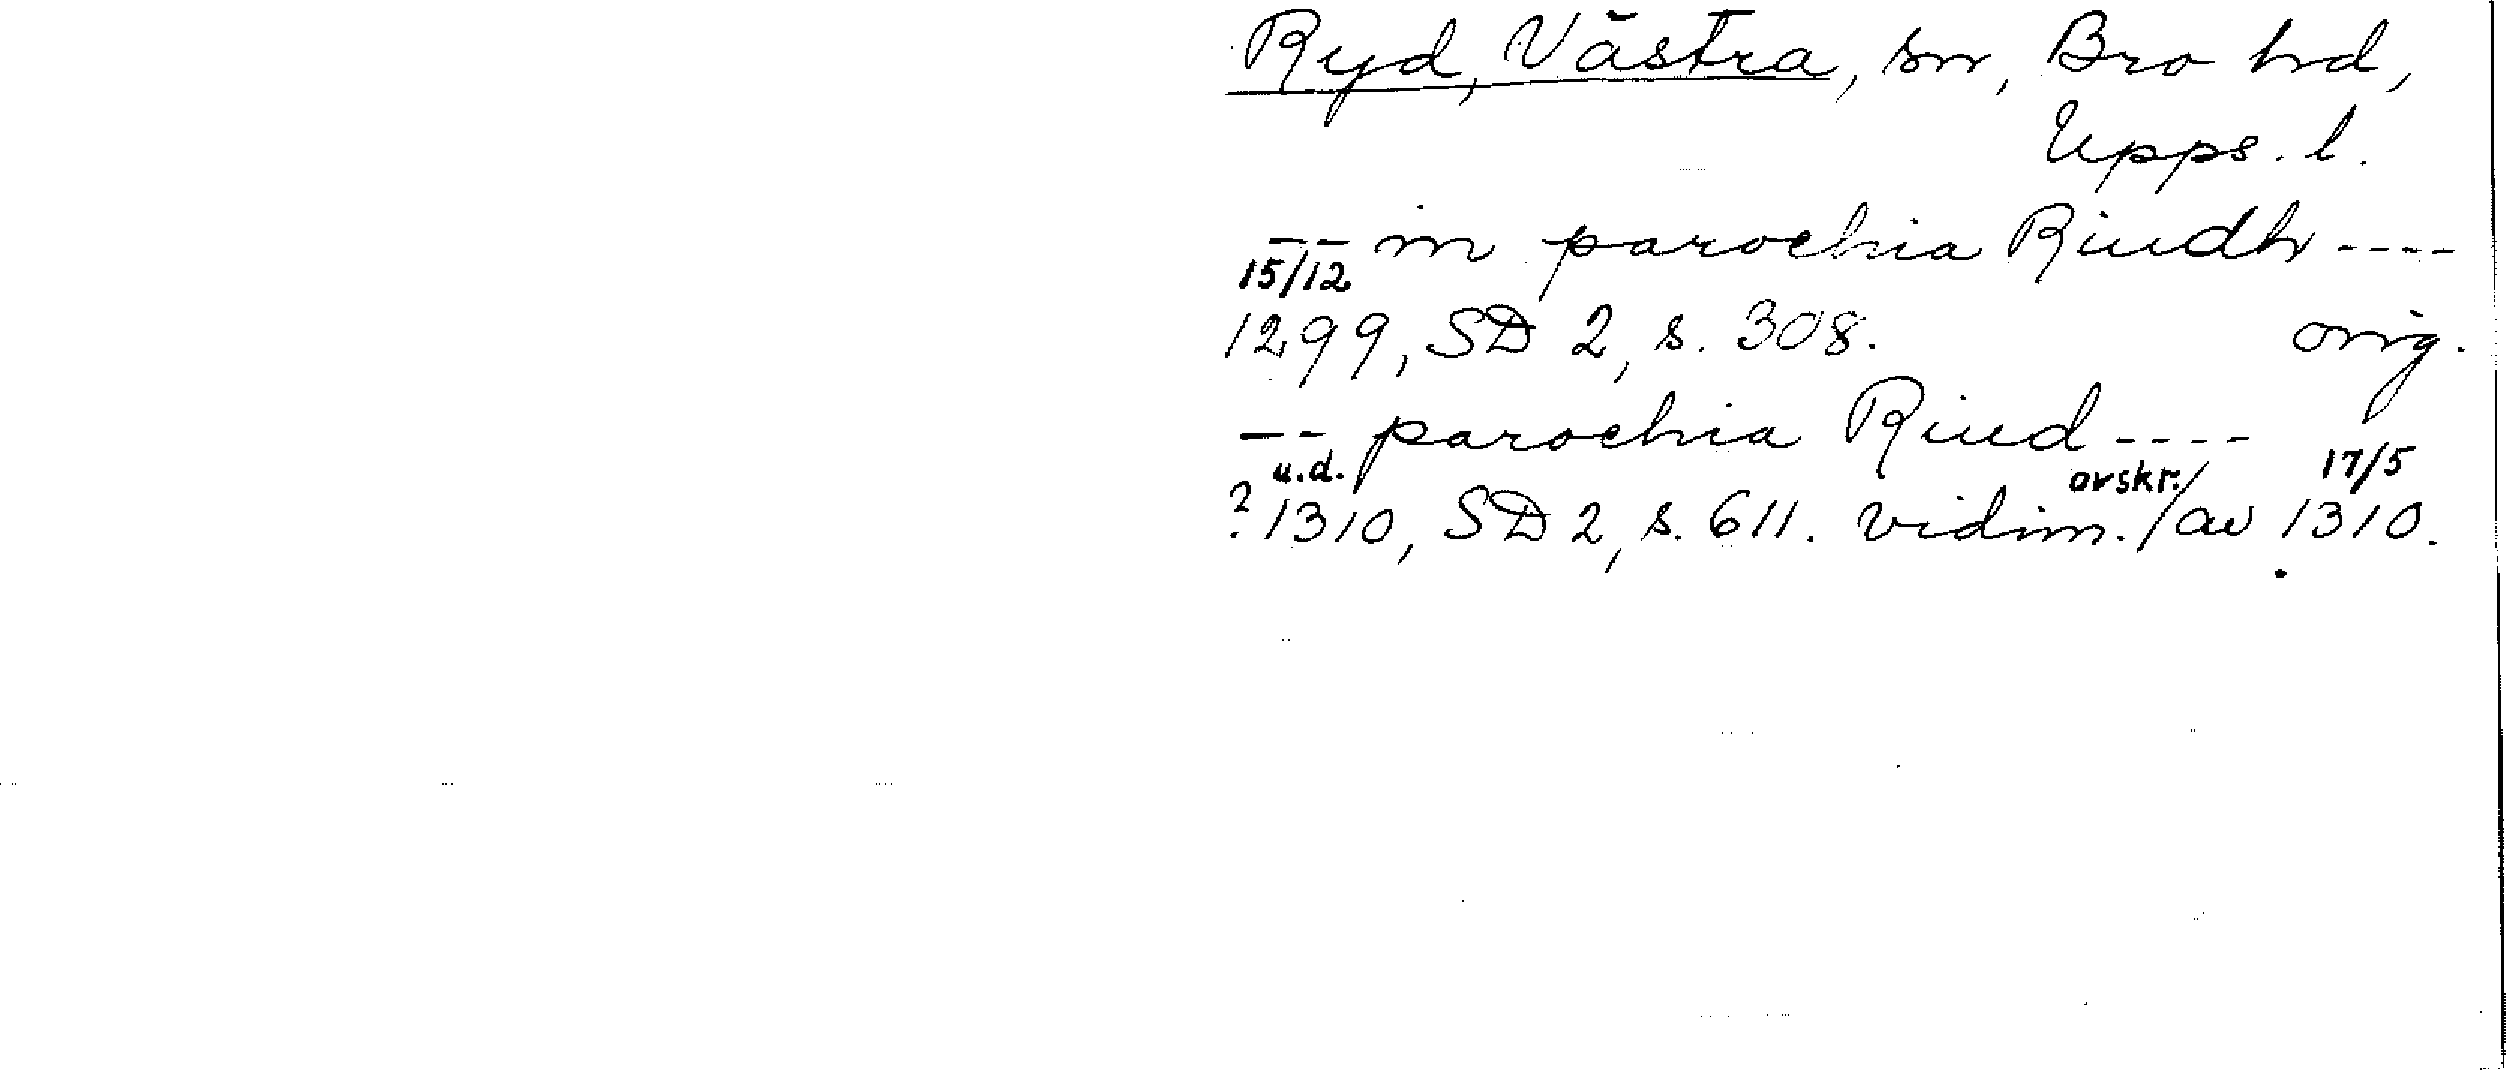 Ryd, Västra, sn, Bro hd,
Upps. l.
-- in parochia Riudh ----
15/12
1299, SD 2, s. 308. orig.
-- parochia Riud ----
u.d. avskr. 17/5
? 1310, SD 2, s. 611. vidim. / av 1310.